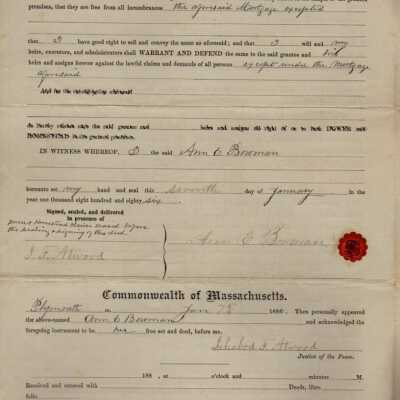 premises, that they are free from all incumbrances the aforesaid Mortgage excepted
that I have good right to sell and convey the same as aforesaid; and that I will and my
heirs, executors, and administrators shall WARRANT AND DEFEND the same to the said grantee and his
heirs and assigns forever against the lawful claims and demands of all persons except under the Mortgage
aforesaid
And for the consideration aforesaid
do hereby release unto the said grantee and heirs and assigns all right of or to both DOWER and
HOMESTEAD in the granted premises.
IN WITNESS WHEREOF, I the said Ann E Bowman
hereunto set my hand and seal this seventh day of January in the
year one thousand eight hundred and eighty six.
Signed, sealed, and delivered
in presence of
Dower & Homestead clause erased before
the sealing & signing of this deed
I. F. Atwood
Ann E Bowman
Commonwealth of Massachusetts.
Plymouth ss. Jany 7th 1886. Then personally appeared
the above-named Ann E Bowman and acknowledged the
foregoing instrument to be her free act and deed, before me,
Ichabod F. Atwood
Justice of the Peace.
188 , at o'clock and minutes M.
Received and entered with Deeds, libro
folio